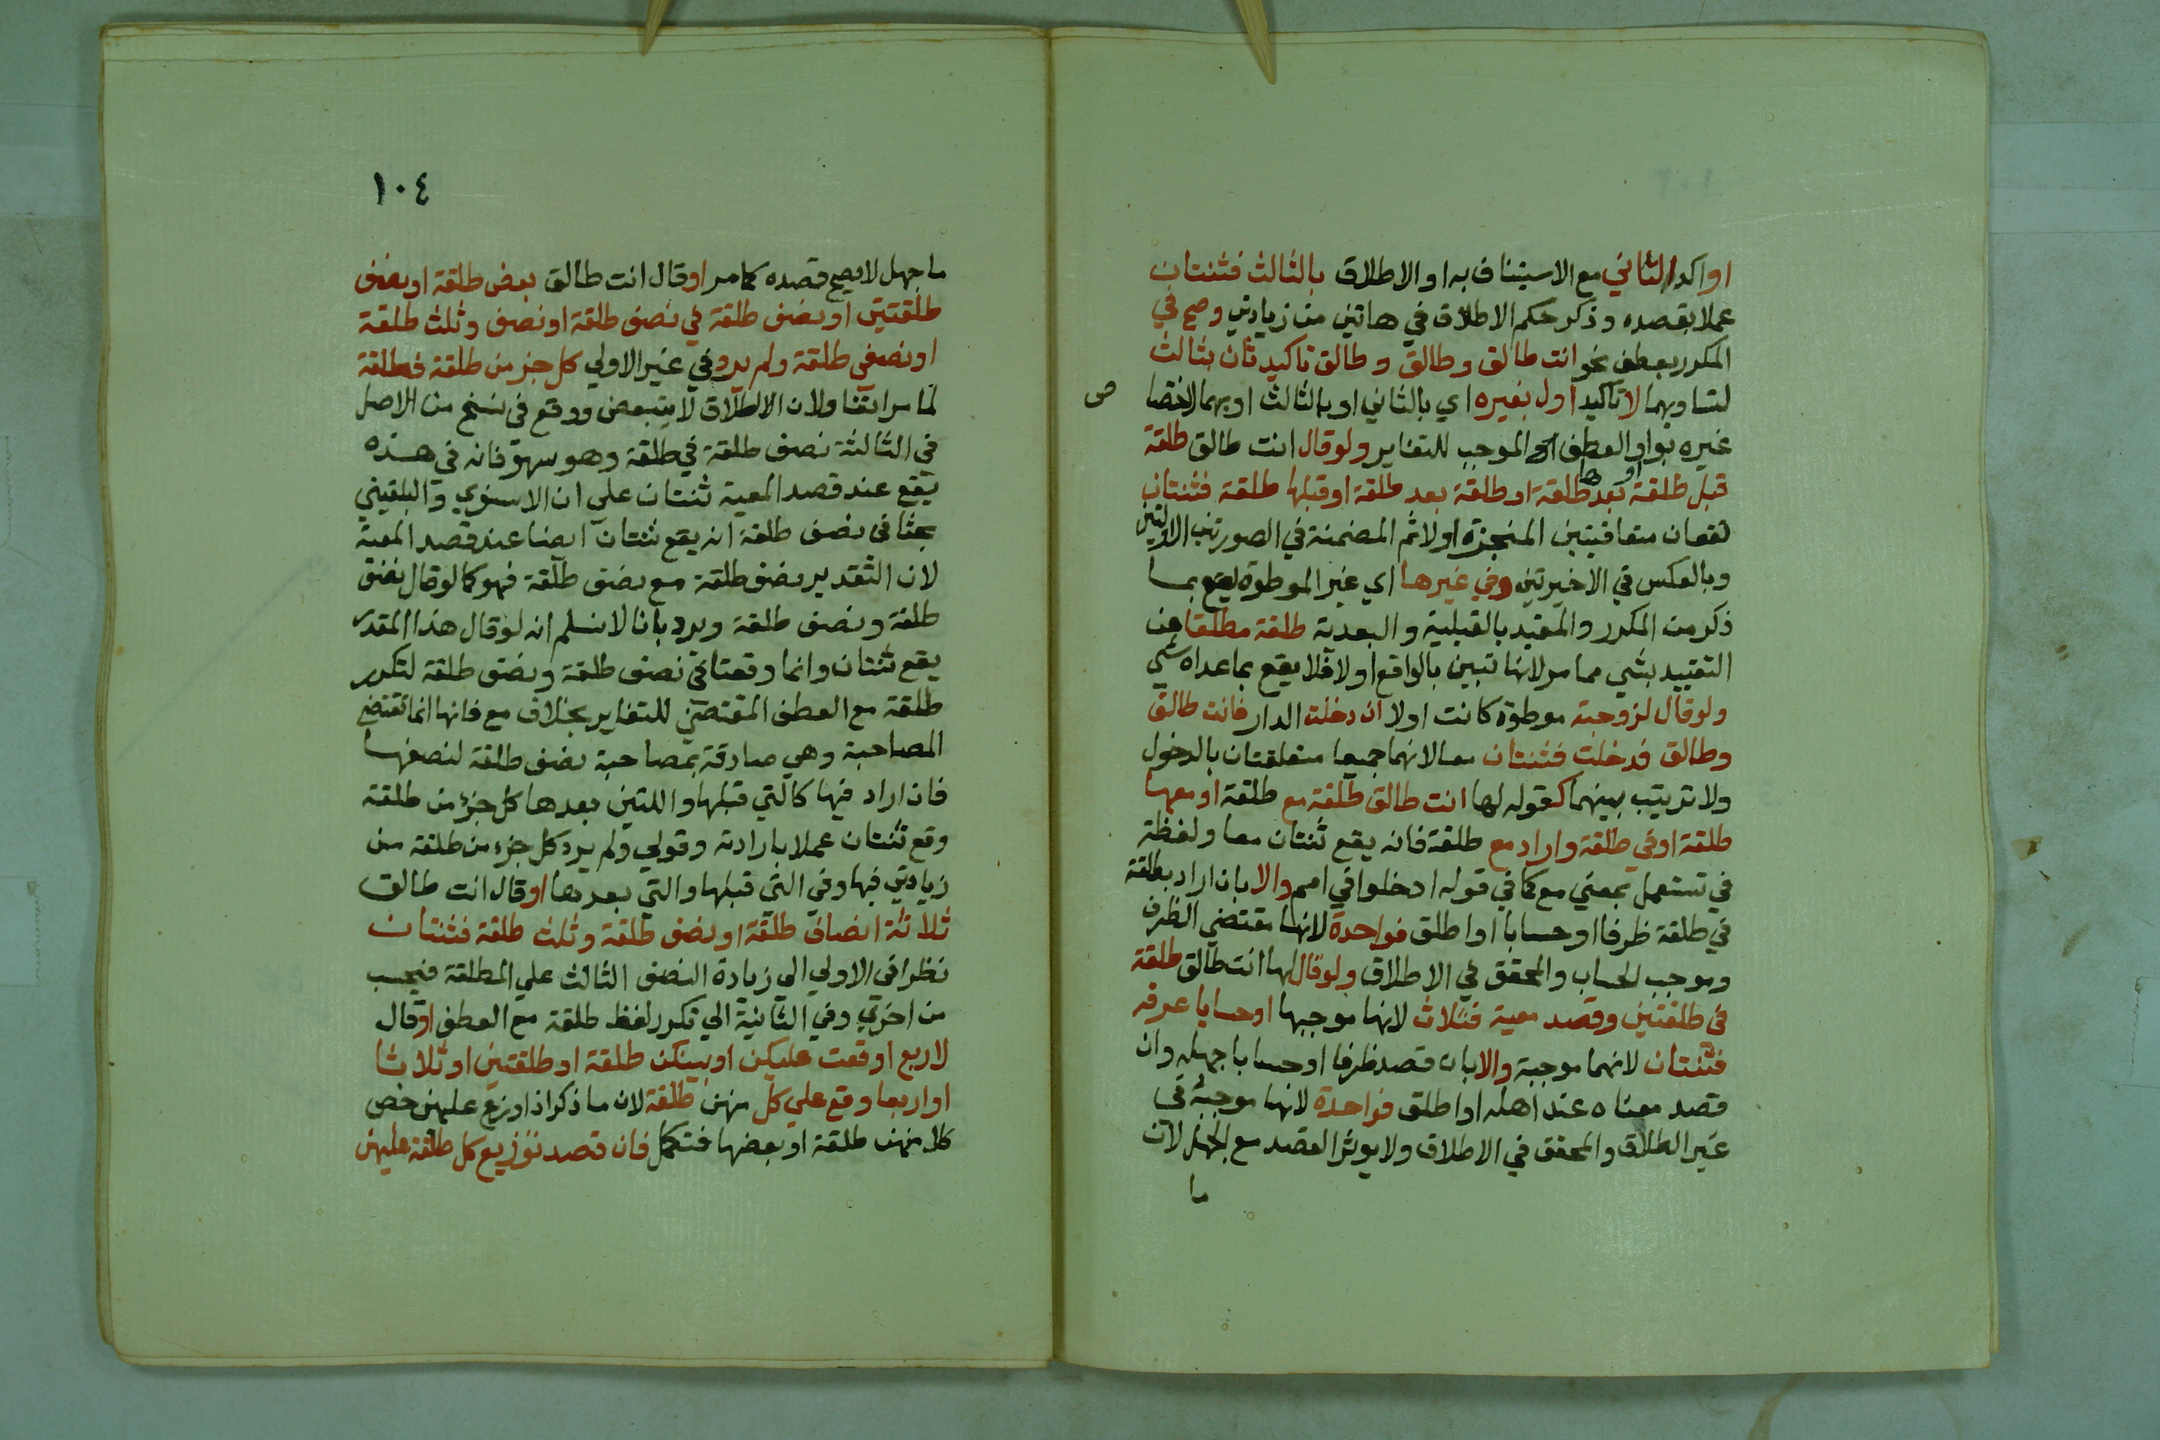 او اكد الثاني مع الاستيناف به او الاطلاق بالثالث فثنتان
عملا بقصده وذكر حكم الاطلاق في هاتين من زيادتي وصح في
المكرر بعطف نحو انت طالق وطالق وطالق تاكيد ثان بثالث
لتساويهما لا تاكيد اول بغيره اي بالثاني او بالثالث او بهما لاختصا
ص
غيره بواو العطف الموجب للتغاير ولو قال انت طالق طلقة
قبل طلقة او بعدها طلقة او طلقة بعد طلقة او قبلها طلقة فثنتان
تقعان متعاقبتين المنجزة اولا ثم المضمنة في الصورتين الاوليتين
وبالعكس في الاخيرتين وفي غيرها اي غير الموطوة يقع بما
ذكر من المكرر والمقيد بالقبلية والبعدية طلقة مطلقا عن
التقييد بشي مما مر لانها تبين بالواقع اولا فلا يقع بما عداه شي
ولو قال لزوجته موطوة كانت اولا ان دخلت الدار فانت طالق
وطالق فدخلت فثنتان معا لانهما جميعا متعلقتان بالدخول
ولا ترتيب بينهما كقوله لها انت طالق طلقة مع طلقة او معها
طلقة او في طلقة واراد مع طلقة فانه يقع ثنتان معا ولفظة
في تستعمل بمعني مع كما في قوله ادخلوا في امم والا بان اراد بطلقة
في طلقة ظرفا او حسابا او اطلق فواحدة لانها مقتضي الظرف
وموجب الحساب والمحقق في الاطلاق ولو قال لها انت طالق طلقة
في طلقتين وقصد معية فثلاث لانها موجبها او حسابا عرفه
فثنتان لانهما موجبة والا بان قصد ظرفا او حسابا جهله وان
قصد معناه عند اهله او اطلق فواحدة لانها موجبة في
غير الطلاق والمحقق في الاطلاق ولا يوثر القصد مع الجهل لان
ما
١٠٤
ما جهل لا يصح قصده كما مر او قال انت طالق بعض طلقة او نصف
طلقتين او نصف طلقة في نصف طلقة او نصف وثلث طلقة
او نصفي طلقة ولم يرد في غير الاولي كل جز من طلقة فطلقة
لما مر انفا ولان الطلاق لا يتبعض ووقع في نسخ من الاصل
في الثالثة نصف طلقة في طلقة وهو سهو فانه في هذه
يقع عند قصد المعية ثنتان علي ان الاسنوي والبلقيني
بحثا في نصف طلقة انه يقع ثنتان ايضا عند قصد المعية
لان التقدير نصف طلقة مع نصف طلقة فهو كما لو قال نصف
طلقة ونصف طلقة ويرد بانا لا نسلم انه لو قال هذا المقدر
يقع ثنتان وانما وقعتا في نصف طلقة ونصف طلقة لتكرر
طلقة مع العطف المقتضي للتغاير بخلاف مع فانها انما تقتضي
المصاحبة وهي صادقة بمصاحبة نصف طلقة لنصفها
فان اراد فيها كالتي قبلها واللتين بعدها كل جزء من طلقة
وقع ثنتان عملا بارادته وقولي ولم يرد كل جزء من طلقة من
زيادتي فيها وفي التي قبلها والتي بعدها او قال انت طالق
ثلاثة انصاف طلقة او نصف طلقة وثلث طلقة فثنتان
نظرا في الاولي الي زيادة النصف الثالث علي الطلقة فيحسب
من اخري وفي الثانية الي تكرر لفظ طلقة مع العطف او قال
لاربع اوقعت عليكن او بينكن طلقة او طلقتين او ثلاثا
او اربعا وقع علي كل منهن طلقة لان ما ذكر اذا وزع عليهن خص
كلا منهن طلقة او بعضها فتكمل فان قصد توزيع كل طلقة عليهن